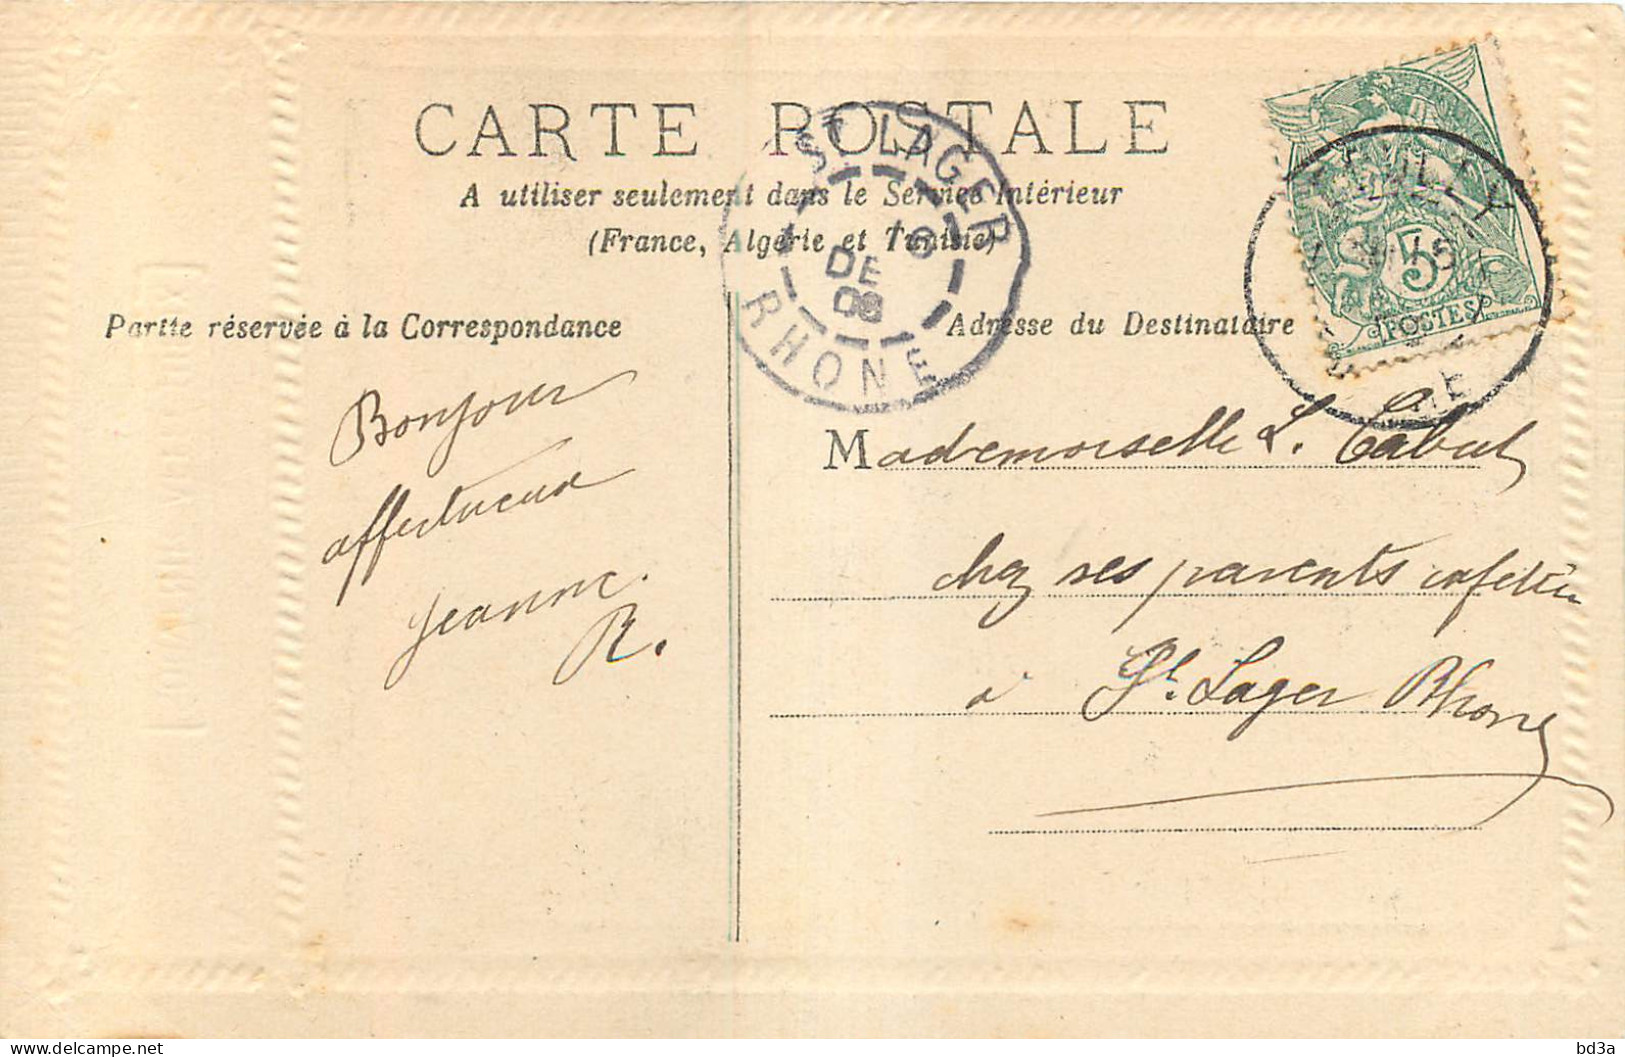 CARTE POSTALE
A utiliser seulement dans le Service Intérieur
(France, Algérie et Tunisie)
Partie réservée à la Correspondance
Adresse du Destinataire
ST LAGER
16
DE
08
RHONE
5
POSTES
Bonjour
affectueux
Jeanne.
R.
Mademoiselle L. Cabut
chez ses parents cafetier
à St. Lager Rhone
bd3a